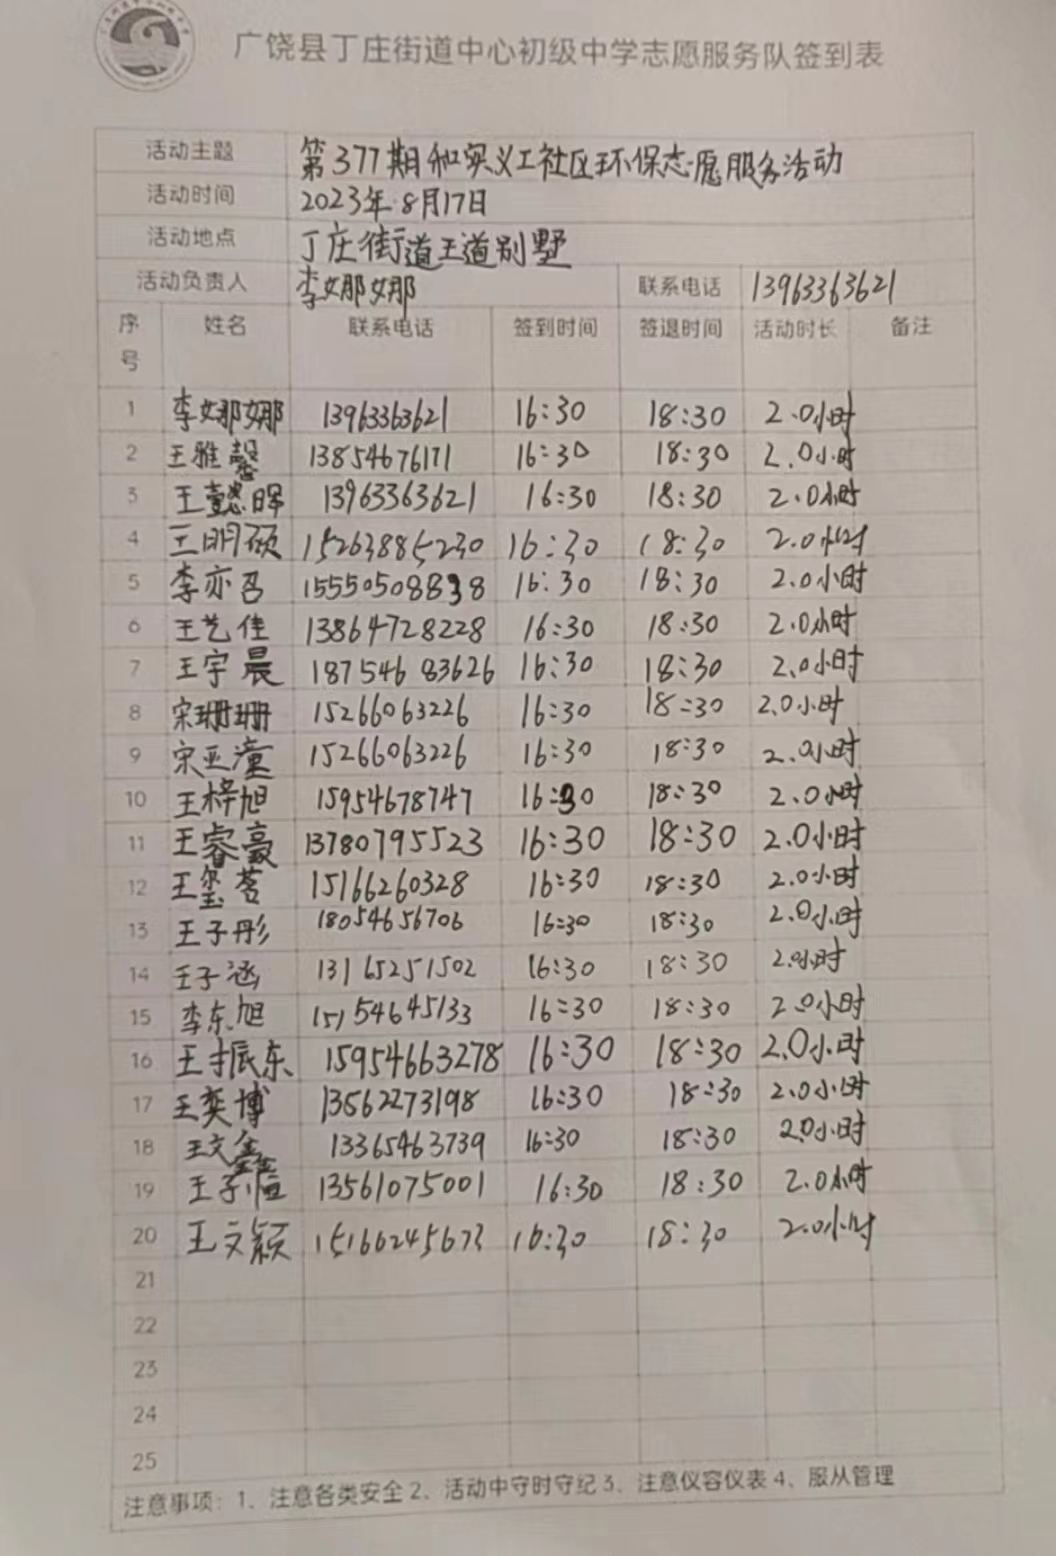 广饶县丁庄街道中心初级中学志愿服务队签到表
活动主题 第377期和实义工社区环保志愿服务活动
活动时间 2023年8月17日
活动地点 丁庄街道王道别墅
活动负责人 李娜娜 联系电话 13963363621
序号 姓名 联系电话 签到时间 签退时间 活动时长 备注
1 李娜娜 13963363621 16:30 18:30 2.0小时
2 王雅馨 13854676171 16:30 18:30 2.0小时
3 王懿晖 13963363621 16:30 18:30 2.0小时
4 王明硕 15263885230 16:30 18:30 2.0小时
5 李亦召 15550508838 16:30 18:30 2.0小时
6 王艺佳 13864728228 16:30 18:30 2.0小时
7 王宇晨 18754683626 16:30 18:30 2.0小时
8 宋珊珊 15266063226 16:30 18:30 2.0小时
9 宋亚童 15266063226 16:30 18:30 2.0小时
10 王梓旭 15954678747 16:30 18:30 2.0小时
11 王睿豪 13780795523 16:30 18:30 2.0小时
12 王玺茗 15166260328 16:30 18:30 2.0小时
13 王子彤 18054656706 16:30 18:30 2.0小时
14 王子涵 13165251502 16:30 18:30 2.0小时
15 李东旭 15154645133 16:30 18:30 2.0小时
16 王振东 15954663278 16:30 18:30 2.0小时
17 王奕博 13562273198 16:30 18:30 2.0小时
18 王文鑫 13365463739 16:30 18:30 2.0小时
19 王子恒 13561075001 16:30 18:30 2.0小时
20 王文颖 15166245673 16:30 18:30 2.0小时
21
22
23
24
25
注意事项：1、注意各类安全 2、活动中守时守纪 3、注意仪容仪表 4、服从管理